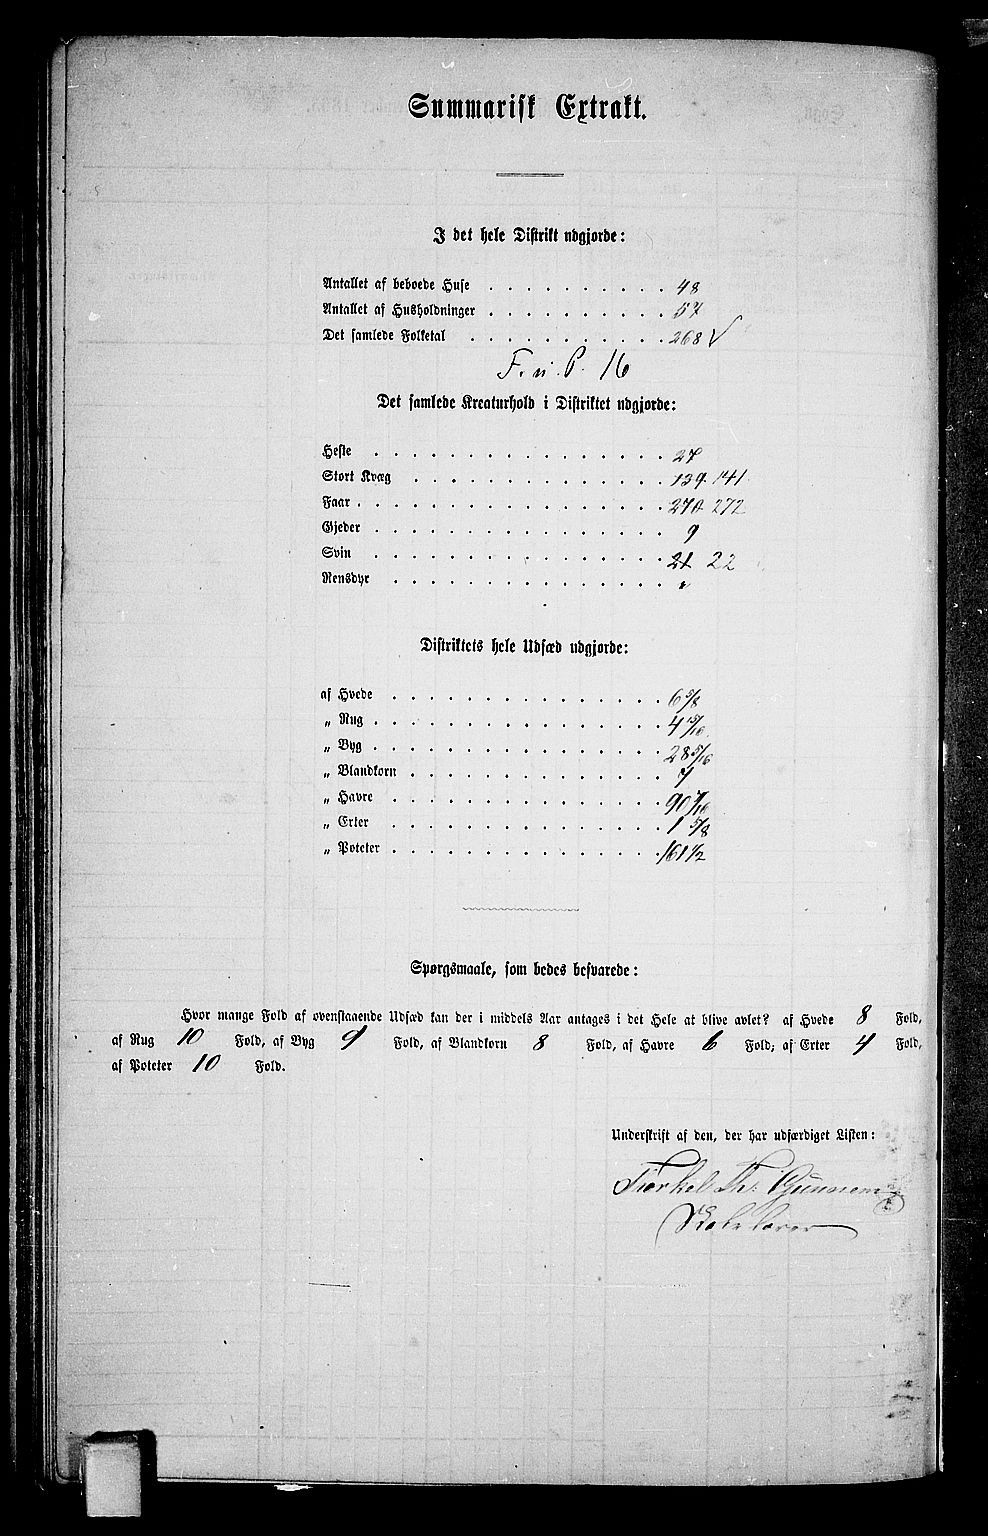 Summarisk Extrakt.
I det hele Distrikt udgjorde:
Antallet af beboede Huse . . . . . . . . . . 48
Antallet af Husholdninger . . . . . . . . . . 57
Det samlede Folketal . . . . . . . . . . 268 √
F. n. P. 16
Det samlede Kreaturhold i Distriktet udgjorde:
Heste . . . . . . . . . . . . . . . 27
Stort Kvæg . . . . . . . . . . . . . 139. 141.
Faar . . . . . . . . . . . . . . . . 270. 272
Gjeder . . . . . . . . . . . . . . . 9
Svin . . . . . . . . . . . . . . . 21 22
Rensdyr . . . . . . . . . . . . . . "
Distriktets hele Udsæd udgjorde:
af Hvede . . . . . . . . . . . . . . 6 5/8
„ Rug . . . . . . . . . . . . . . . 4 15/16
„ Byg . . . . . . . . . . . . . . . 28 5/16
„ Blandkorn . . . . . . . . . . . . . 7
„ Havre . . . . . . . . . . . . . . 90 7/16
„ Erter . . . . . . . . . . . . . . 1 5/8
„ Poteter . . . . . . . . . . . . . . 161 1/2
Spørgsmaale, som bedes besvarede:
Hvor mange Fold af ovenstaaende Udsæd kan der i middels Aar antages i det Hele at blive avlet? af Hvede 8 Fold,
af Rug 10 Fold, af Byg 9 Fold, af Blandkorn 8 Fold, af Havre 6 Fold; af Erter 4 Fold,
af Poteter 10 Fold.
Underskrift af den, der har udfærdiget Listen:
Tiorkel Th. Gunnem
Skolelærer